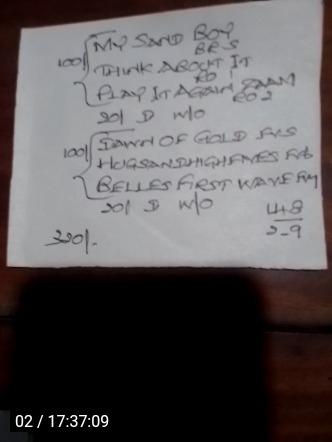 100/ MY SAND BOY
BRS
THINK ABOUT IT
RO 1
PLAY IT AGAIN SAAM
RO 2
20/ D W/O
100/ DAWN OF GOLD
HUGSANDHIGHFIVES
BELLES FIRST WAVE
20/ D W/O
148
2-9
320/-
02 / 17:37:09